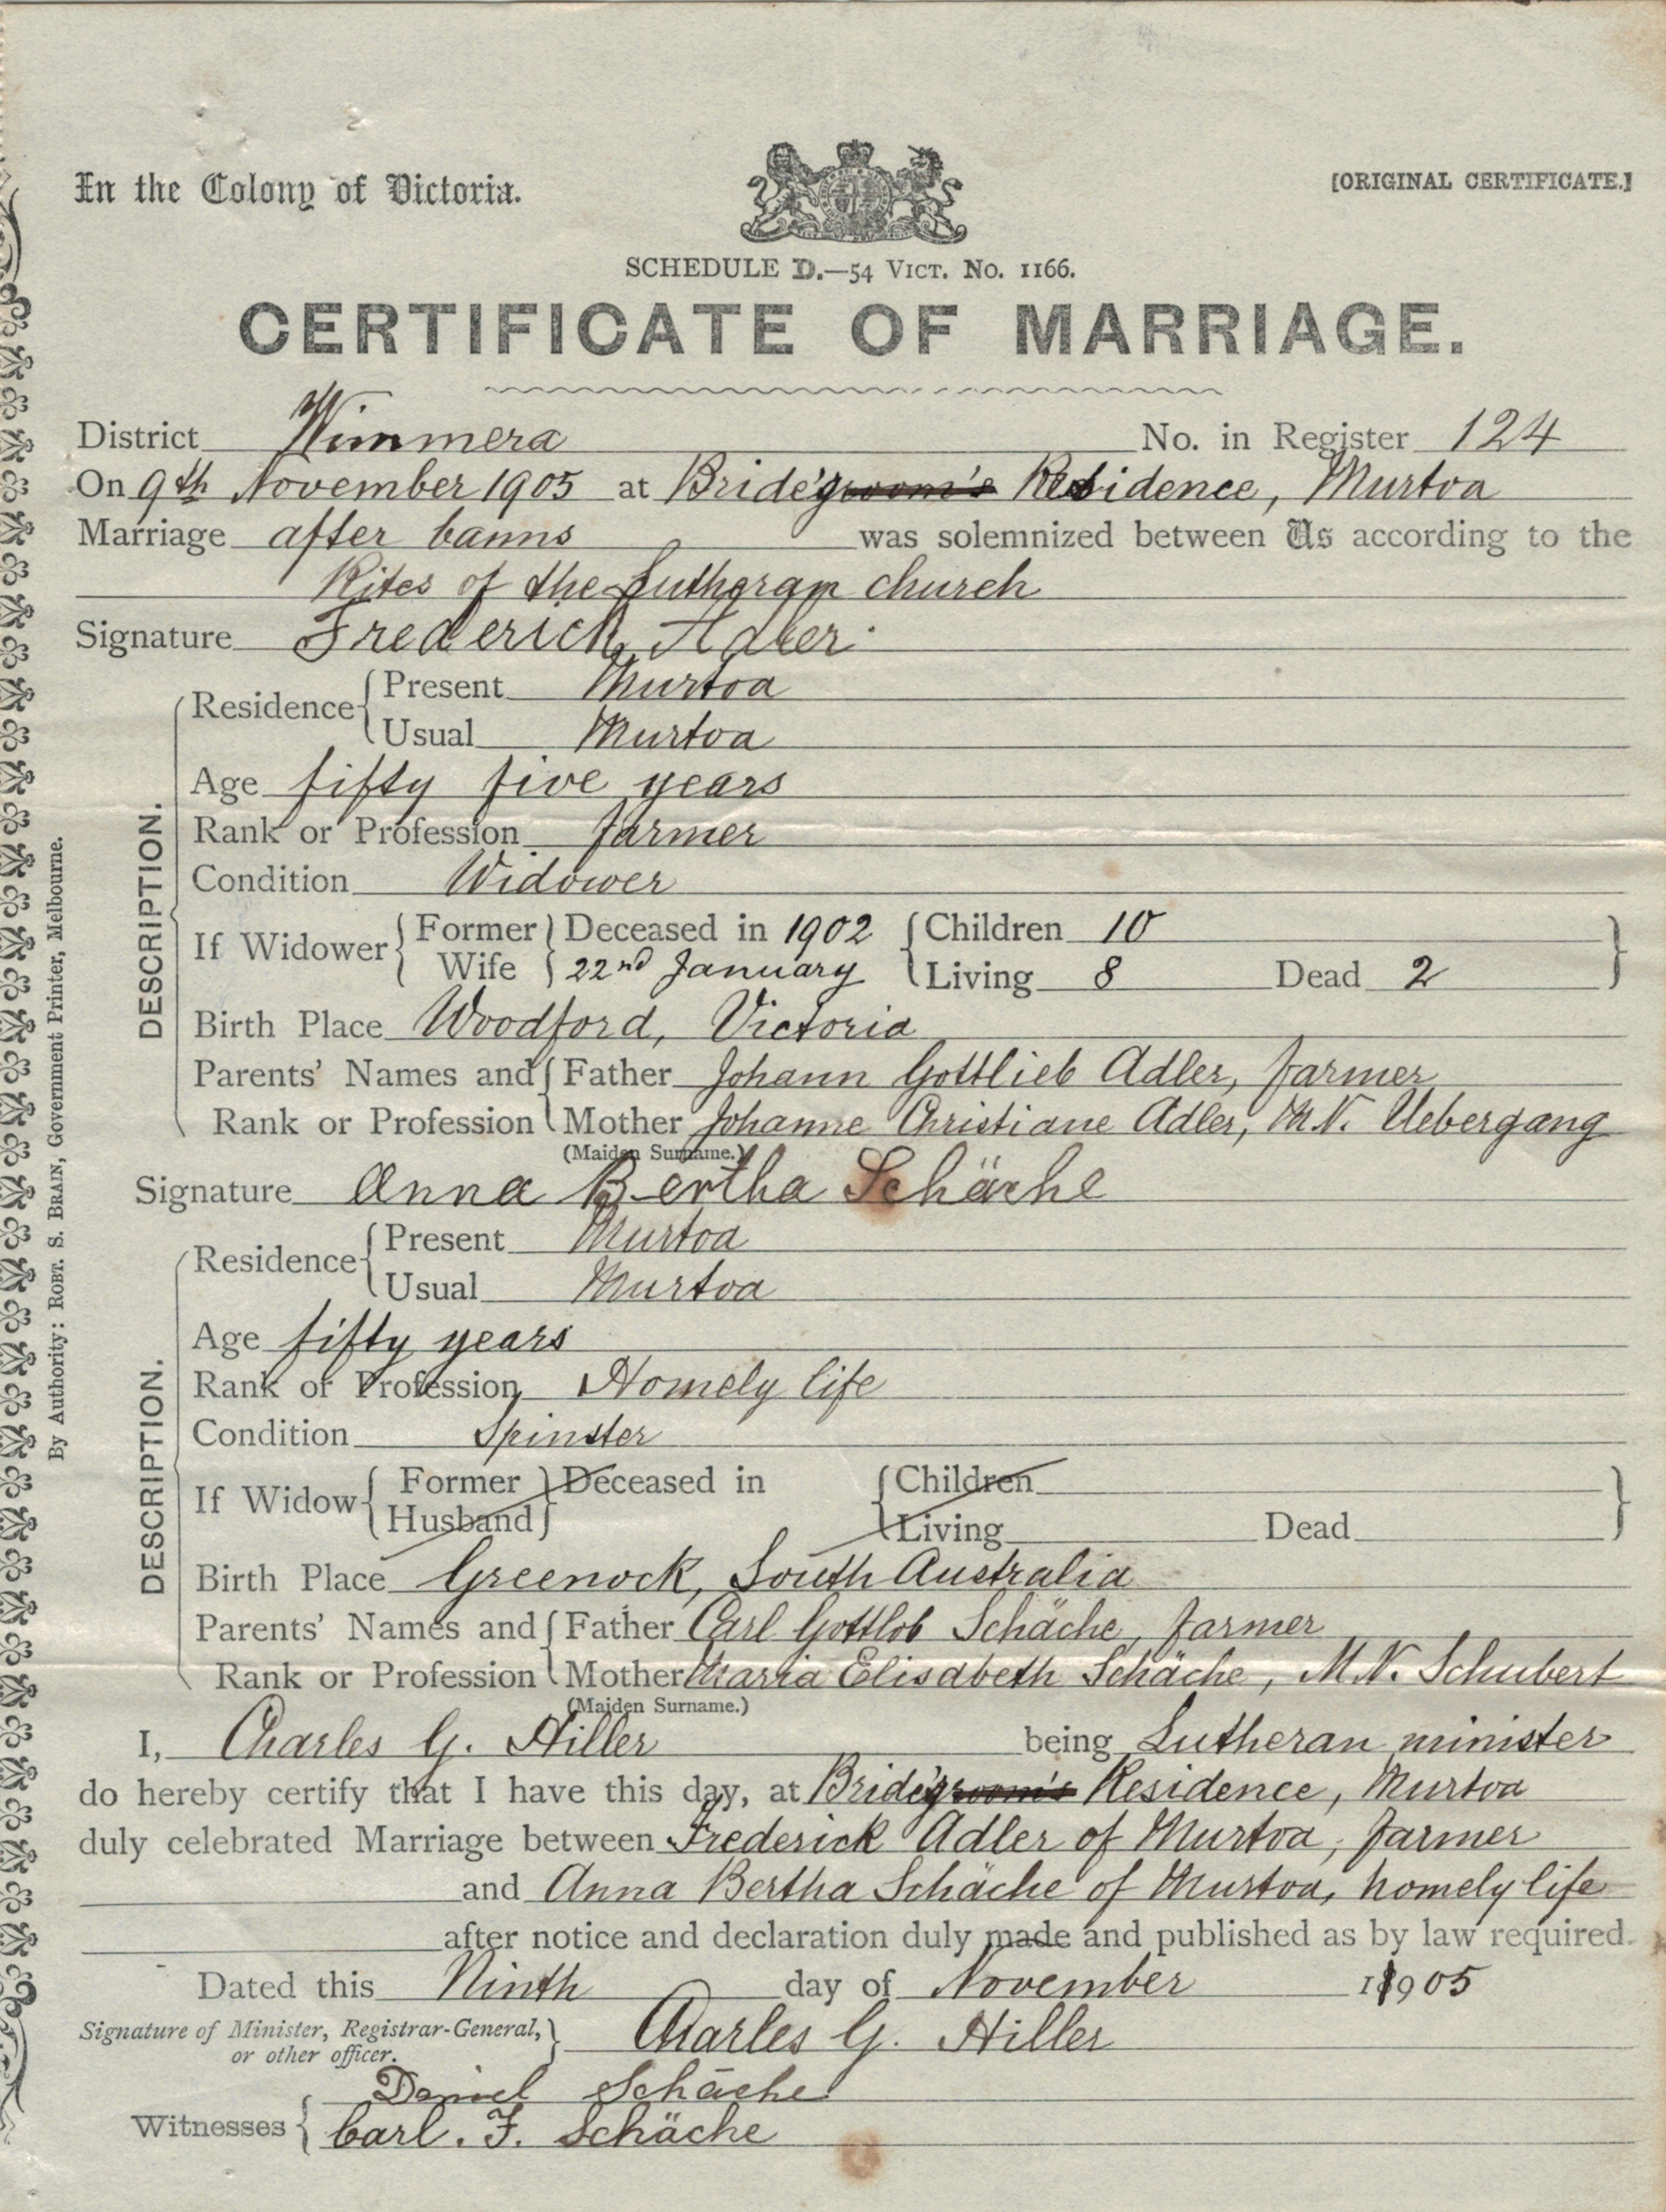 In the Colony of Victoria.
[ORIGINAL CERTIFICATE.]
SCHEDULE D.—54 VICT. No. 1166.
CERTIFICATE OF MARRIAGE.
District Wimmera No. in Register 124
On 9th November 1905 at Bride'groom's Residence, Murtoa
Marriage after banns was solemnized between Us according to the
Rites of the Lutheran church
Signature Frederick Adler.
DESCRIPTION.
Residence Present Murtoa
Usual Murtoa
Age fifty five years
Rank or Profession farmer
Condition Widower
If Widower Former Wife Deceased in 1902 22nd January Children 10
Living 8 Dead 2
Birth Place Woodford, Victoria
Parents' Names and Father Johann Gottlieb Adler, farmer
Rank or Profession Mother Johanne Christiane Adler, M.N. Uebergang
(Maiden Surname.)
Signature Anna Bertha Schäche
DESCRIPTION.
Residence Present Murtoa
Usual Murtoa
Age fifty years
Rank or Profession Homely life
Condition Spinster
If Widow Former Husband Deceased in Children
Living Dead
Birth Place Greenock, South Australia
Parents' Names and Father Carl Gottlob Schäche, farmer
Rank or Profession Mother Maria Elisabeth Schäche, M.N. Schubert
(Maiden Surname.)
I, Charles G. Hiller being Lutheran minister
do hereby certify that I have this day, at Bride'groom's Residence, Murtoa
duly celebrated Marriage between Frederick Adler of Murtoa, farmer
and Anna Bertha Schäche of Murtoa, homely life
after notice and declaration duly made and published as by law required.
Dated this Ninth day of November 1905
Signature of Minister, Registrar-General,
or other officer. Charles G. Hiller
Witnesses Daniel Schäche
Carl. F. Schäche
By Authority: ROBT. S. BRAIN, Government Printer, Melbourne.